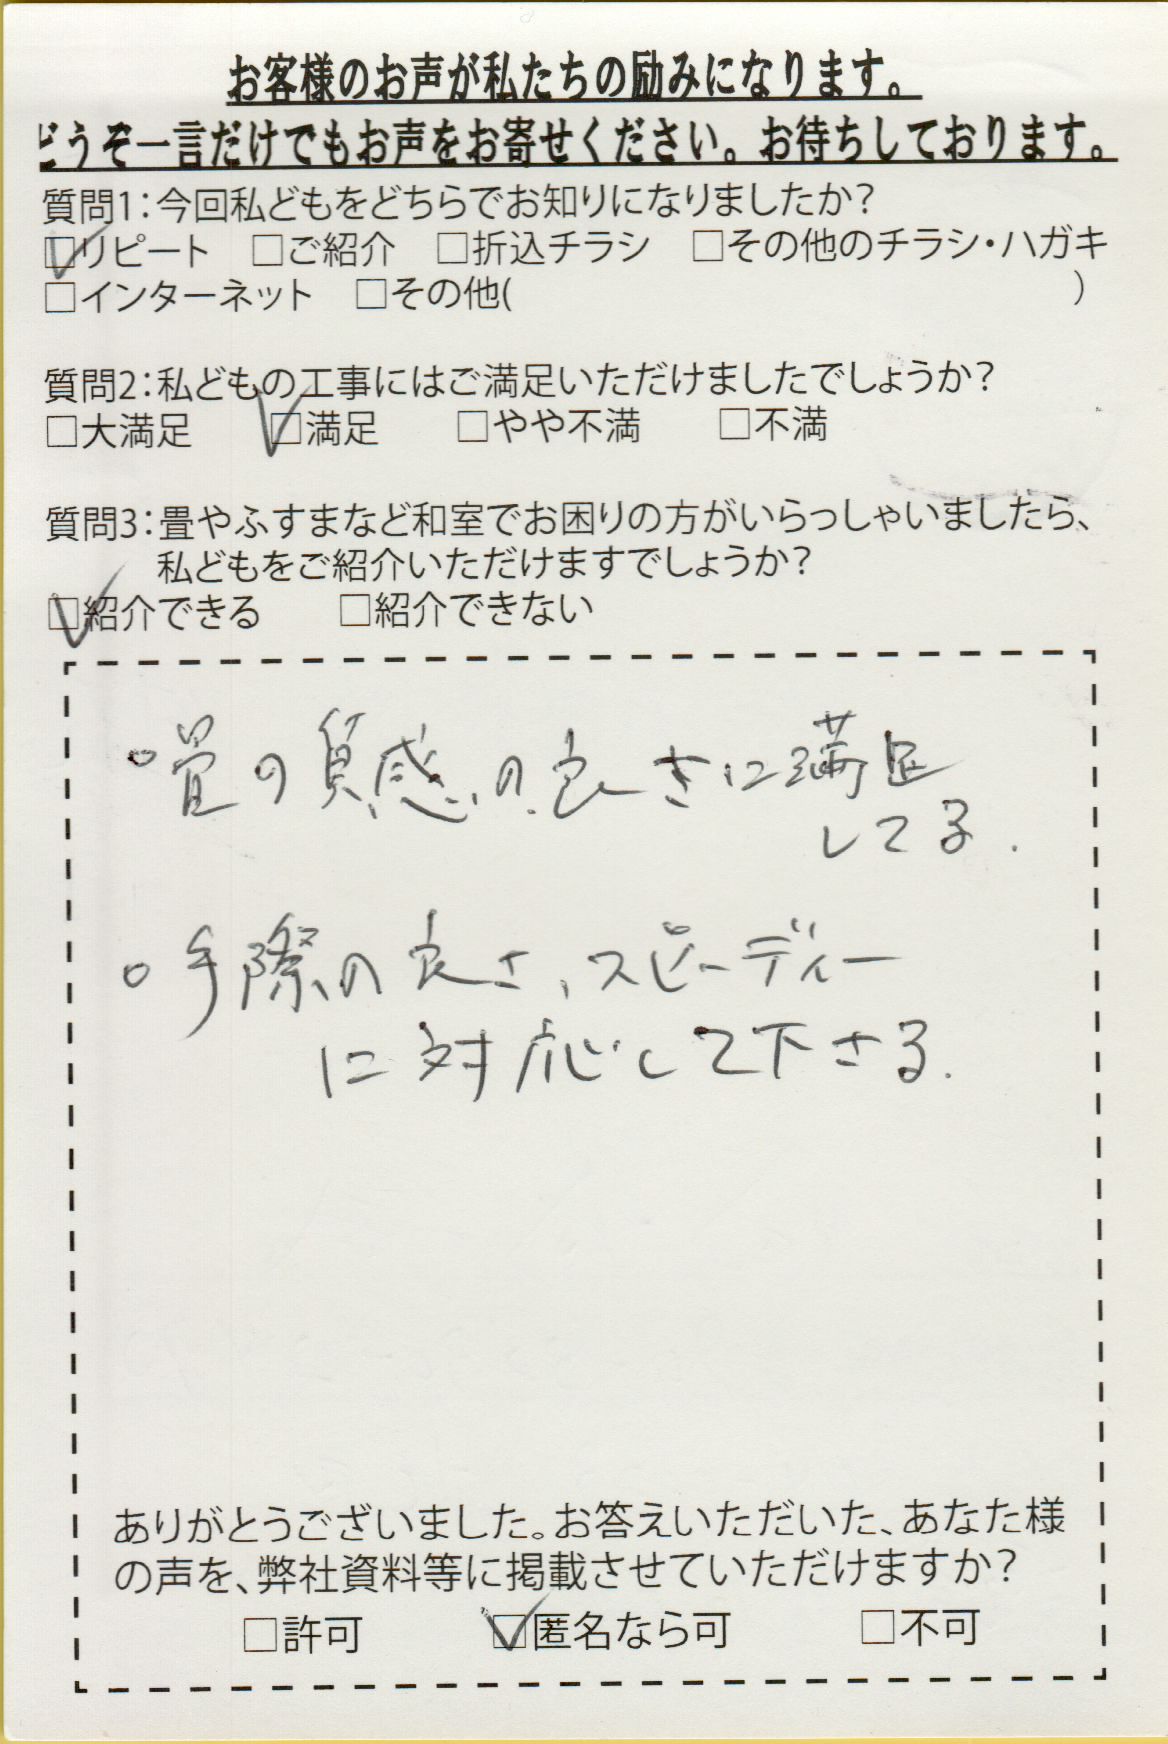 お客様のお声が私たちの励みになります。
どうぞ一言だけでもお声をお寄せください。お待ちしております。
質問1：今回私どもをどちらでお知りになりましたか？
☑リピート　□ご紹介　□折込チラシ　□その他のチラシ・ハガキ
□インターネット　□その他(　　　　　　　　　　)
質問2：私どもの工事にはご満足いただけましたでしょうか？
□大満足　☑満足　□やや不満　□不満
質問3：畳やふすまなど和室でお困りの方がいらっしゃいましたら、
私どもをご紹介いただけますでしょうか？
☑紹介できる　□紹介できない
○畳の質感の良さに満足
してる.
○手際の良さ、スピーディー
に対応して下さる.
ありがとうございました。お答えいただいた、あなた様
の声を、弊社資料等に掲載させていただけますか？
□許可　☑匿名なら可　□不可